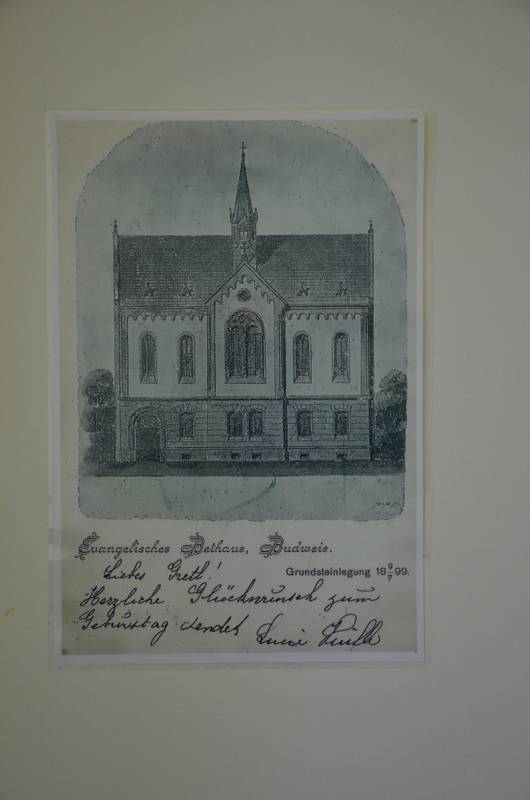 Evangelisches Bethaus, Budweis.
Grundsteinlegung 18 9/7 99.
Liebes Gretl!
Herzliche Glückwunsch zum
Geburtstag sendet